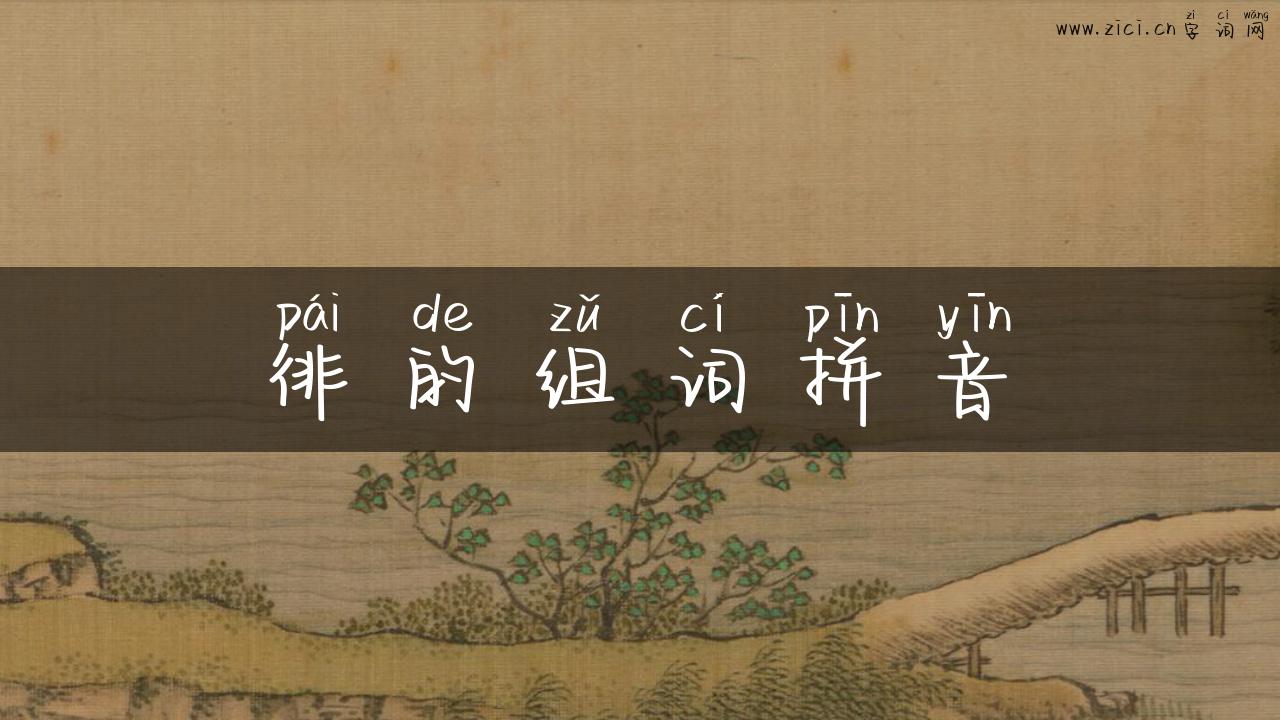 zì cí wǎng
www.zici.cn 字 词 网
pái de zǔ cí pīn yīn
徘 的 组 词 拼 音